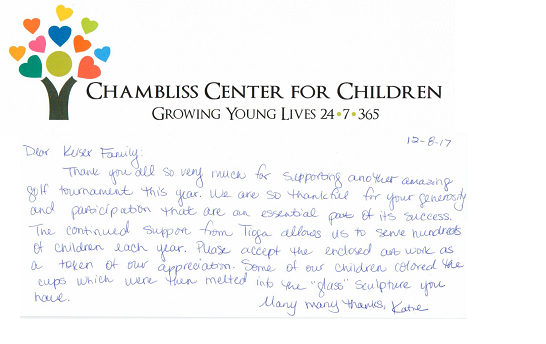 CHAMBLISS CENTER FOR CHILDREN
GROWING YOUNG LIVES 24•7•365
12-8-17
Dear Keiser Family:
Thank you all so very much for supporting another amazing
golf tournament this year. We are so thankful for your generosity
and participation that are an essential part of its success.
The continued support from Tioga allows us to serve hundreds
of children each year. Please accept the enclosed art work as
a token of our appreciation. Some of our children colored the
cups which were then melted into the "glass" sculpture you
have.
Many many thanks, Katie